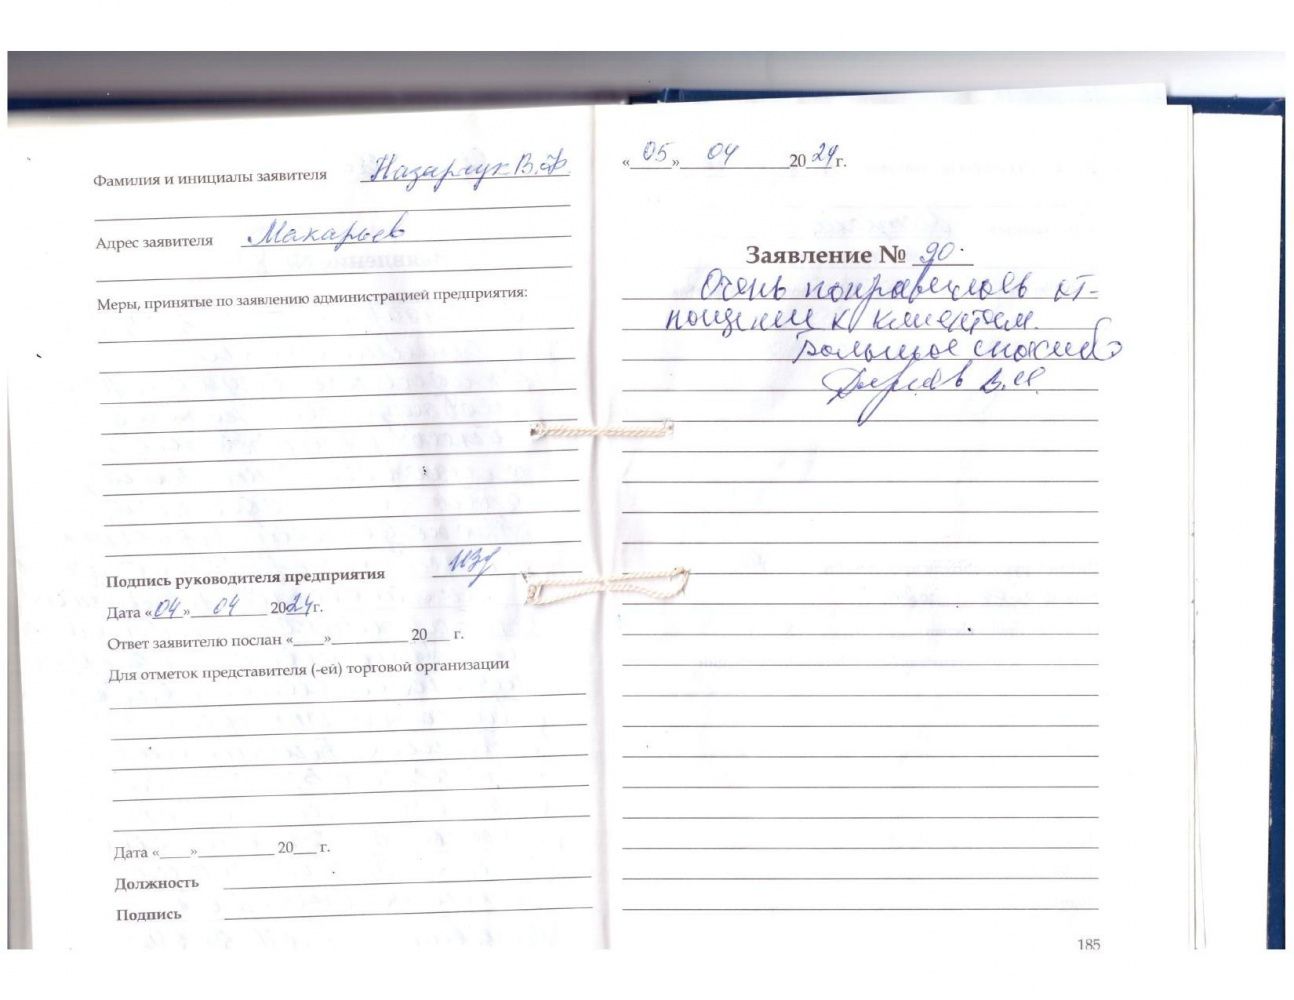 Фамилия и инициалы заявителя Назарчук В.Ф.
Адрес заявителя Макарьев
Меры, принятые по заявлению администрацией предприятия:
Подпись руководителя предприятия
Дата «04» 04 2024г.
Ответ заявителю послан «____»__________ 20___ г.
Для отметок представителя (-ей) торговой организации
Дата «____»__________ 20___ г.
Должность
Подпись
«05» 04 2024г.
Заявление № 90.
Очень понравилось от-
ношении к клиентам.
Большое спасибо
В.И.
185